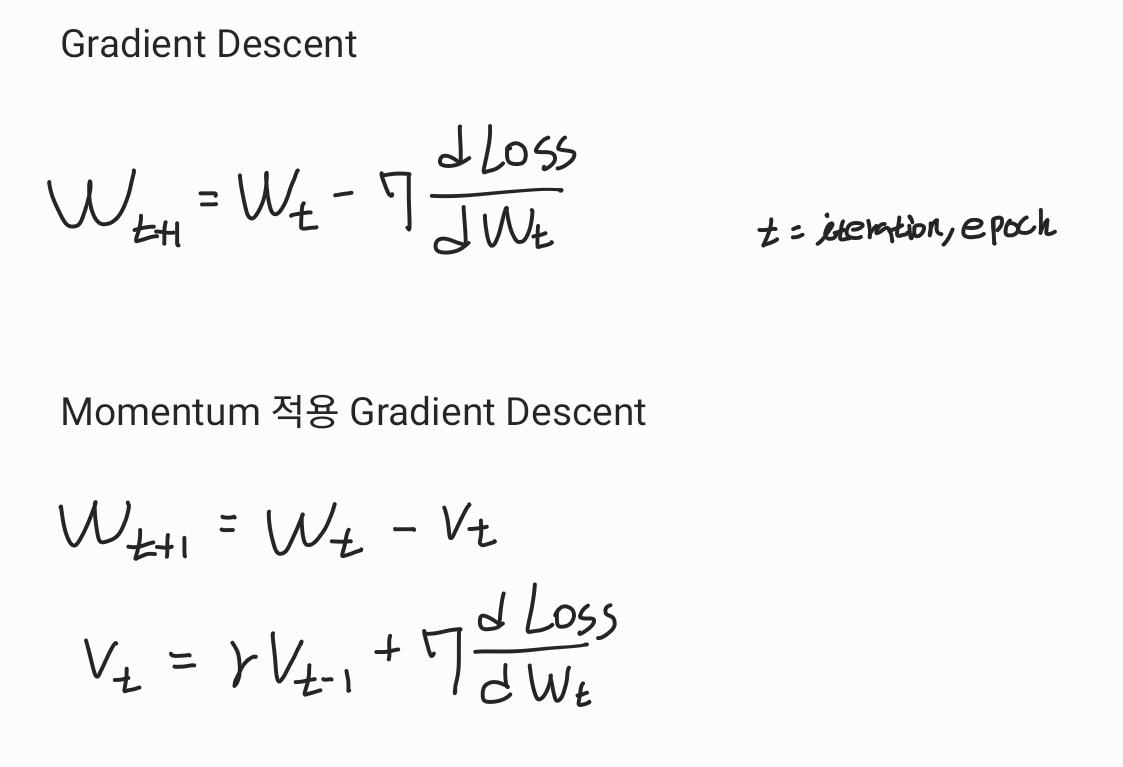 Gradient Descent
W_{t+1} = W_t - η \frac{dLoss}{dW_t}
t = iteration, epoch
Momentum 적용 Gradient Descent
W_{t+1} = W_t - V_t
V_t = γV_{t-1} + η \frac{dLoss}{dW_t}